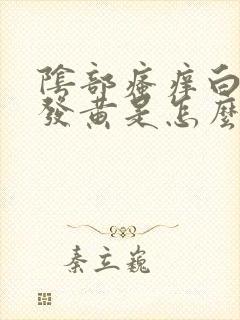 陰部瘙痒白
發黄是怎麼
秦立巍